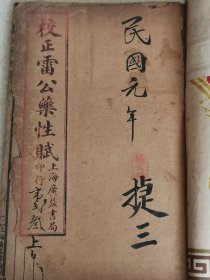 民國元年
捷三
校正雷公藥性賦
上海廣益書局
印行
上